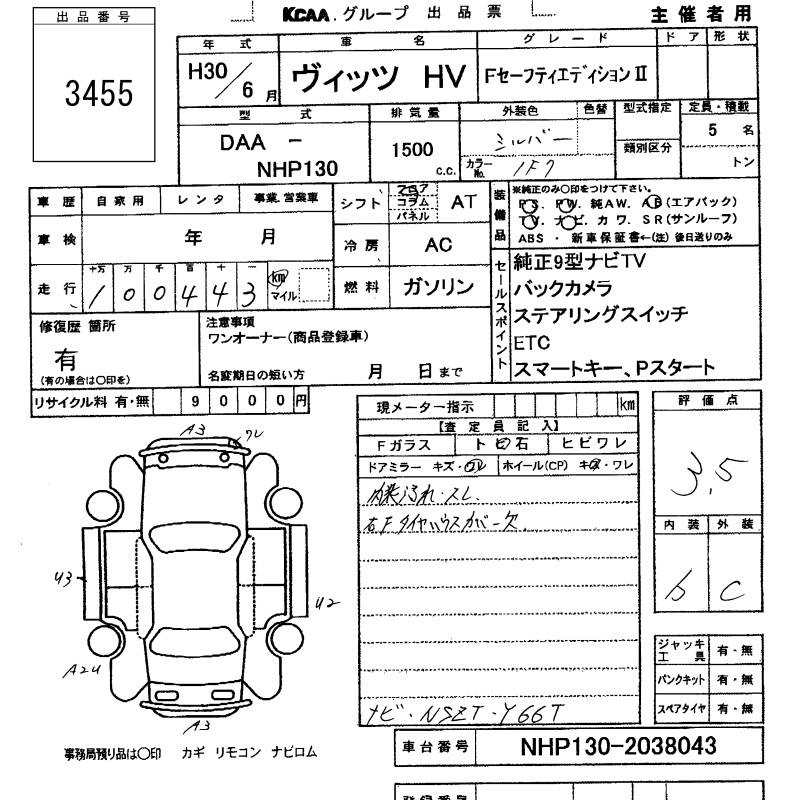 出品番号
3455
KCAA.グループ 出品票
主催者用
年式
車名
グレード
ドア
形状
H30/6月
ヴィッツ HV
FセーフティエディションⅡ
型式
排気量
外装色
色替
型式指定
定員・積載
DAA -
NHP130
1500
c.c.
シルバー
カラーNo. 1F7
類別区分
5 名
トン
車歴
自家用
レンタ
事業.営業車
車検
年 月
走行
十万 万 千 百 十 一
1 0 0 4 4 3
km
マイル
シフト
フロア
コラム
パネル
AT
冷房
AC
燃料
ガソリン
装備品
※純正のみ○印をつけて下さい。
PS. PW. 純AW. AB(エアバック)
TV. ナビ. カワ. SR(サンルーフ)
ABS・新車保証書←(注)後日送りのみ
セールスポイント
純正9型ナビTV
バックカメラ
ステアリングスイッチ
ETC
スマートキー、Pスタート
修復歴 箇所
有
(有の場合は○印を)
注意事項
ワンオーナー(商品登録車)
名変期日の短い方 月 日まで
リサイクル料 有・無 9000円
現メーター指示 km
【査定員記入】
Fガラス
ト ビ 石
ヒビワレ
ドアミラー キズ・ワレ
ホイール(CP) キズ・ワレ
内装汚れ・スレ
右FタイヤハウスカバーX欠
ナビ・NSZT-Y66T
評価点
3.5
内装
外装
b
C
A3
ワレ
U3
U2
A2U
A3
ジャッキ工具 有・無
パンクキット 有・無
スペアタイヤ 有・無
事務局預り品は○印 カギ リモコン ナビロム
車台番号
NHP130-2038043
登録番号